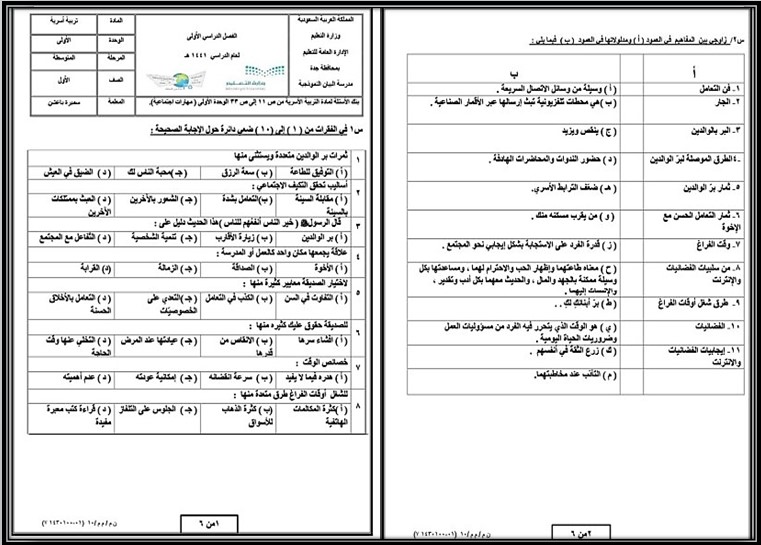 المملكة العربية السعودية
وزارة التعليم
الإدارة العامة للتعليم
بمحافظة جدة
مدرسة البيان النموذجية
الفصل الدراسي الأول
لعام الدراسي ١٤٤١ هـ
المادة تربية أسرية
الوحدة الأولى
المرحلة المتوسطة
الصف الأول
المعلمة سميرة باعشن
بنك الأسئلة لمادة التربية الأسرية من ص ١١ إلى ص ٣٣ الوحدة الأولى ( مهارات اجتماعية).
س١ في الفقرات من (١) إلى (١٠) ضعي دائرة حول الإجابة الصحيحة :
١ ثمرات بر الوالدين متعددة ويستثنى منها
(أ) التوفيق للطاعة (ب) سعة الرزق (جـ) محبة الناس لك (د) الضيق في العيش
٢ أساليب تحقق التكيف الاجتماعي :
(أ) مقابلة السيئة بالسيئة (ب) التعامل بشدة (جـ) الشعور بالآخرين (د) العبث بممتلكات الآخرين
٣ قال الرسول ﷺ ( خير الناس أنفعهم للناس ) هذا الحديث دليل على :
(أ) بر الوالدين (ب) زيارة الأقارب (جـ) تنمية الشخصية (د) التفاعل مع المجتمع
٤ علاقة يجمعها مكان واحد كالعمل أو المدرسة :
(أ) الأخوة (ب) الصداقة (جـ) الزمالة (د) القرابة
٥ لاختيار الصديقة معايير كثيرة منها :
(أ) التفاوت في السن (ب) الكذب في التعامل (جـ) التعدي على الخصوصيات (د) التعامل بالأخلاق الحسنة
٦ للصديقة حقوق عليك كثيره منها :
(أ) افشاء سرها (ب) الانقاص من قدرها (جـ) عيادتها عند المرض (د) التخلي عنها وقت الحاجة
٧ خصائص الوقت :
(أ) هدره فيما لا يفيد (ب) سرعة انقضائه (جـ) إمكانية عودته (د) عدم أهميته
٨ للشغال أوقات الفراغ طرق متعددة منها :
(أ) كثرة المكالمات الهاتفية (ب) كثرة الذهاب للأسواق (جـ) الجلوس على التلفاز (د) قراءة كتب معبرة مفيدة
١من ٦
س٢/ زاوجي بين المفاهيم في العمود (أ) ومدلولاتها في العمود (ب) فيما يلي :
أ ب
١- فن التعامل (أ) وسيلة من وسائل الاتصال السريعة .
٢- الجار (ب) هي محطات تلفزيونية تبث إرسالها عبر الأقمار الصناعية .
٣- البر بالوالدين (ج) ينقص ويزيد
٤- الطرق الموصلة لبرّ الوالدين (د) حضور الندوات والمحاضرات الهادفة .
٥- ثمار برّ الوالدين (هـ) ضعف الترابط الأسري.
٦- ثمار التعامل الحسن مع الإخوة (و) من يقرب مسكنه منك .
٧- وقت الفراغ (ز) قدرة الفرد على الاستجابة بشكل إيجابي نحو المجتمع .
٨- من سلبيات الفضائيات والإنترنت (ح) معناه طاعتهما وإظهار الحب والاحترام لهما ، ومساعدتها بكل وسيلة ممكنة بالجهد والمال ، والحديث معهما بكل أدب وتقدير ، والإنصات إليهما .
٩- طرق شغل أوقات الفراغ (ط) برّ أبنائك لك ..
١٠- الفضائيات (ي) هو الوقت الذي يتحرر فيه الفرد من مسؤوليات العمل وضروريات الحياة اليومية .
١١- إيجابيات الفضائيات والانترنت (ك) زرع الثقة في أنفسهم .
(م) التأدب عند مخاطبتهما.
٢من ٦